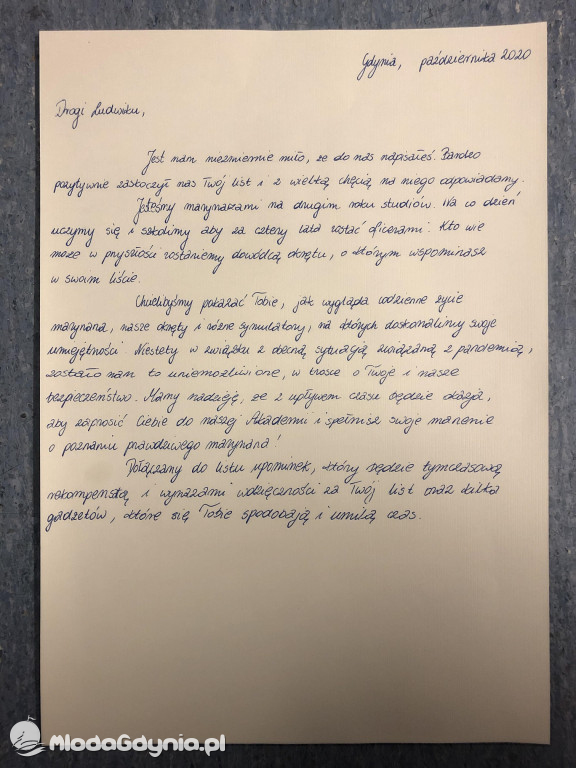 Gdynia, października 2020
Drogi Ludwiku,
Jest nam niezmiernie miło, że do nas napisałeś. Bardzo
pozytywnie zaskoczył nas Twój list i z wielką chęcią na niego odpowiadamy.
Jesteśmy marynarzami na drugim roku studiów. Na co dzień
uczymy się i szkolimy aby za cztery lata zostać oficerami. Kto wie
może w przyszłości zostaniemy dowódcą okrętu, o którym wspominasz
w swoim liście.
Chcielibyśmy pokazać Tobie, jak wygląda codzienne życie
marynarza, nasze okręty i różne symulatory, na których doskonalimy swoje
umiejętności. Niestety w związku z obecną sytuacją związaną z pandemią,
zostało nam to uniemożliwione, w trosce o Twoje i nasze
bezpieczeństwo. Mamy nadzieję, że z upływem czasu będzie okazja,
aby zaprosić Ciebie do naszej Akademii i spełnisz swoje marzenie
o poznaniu prawdziwego marynarza!
Dołączamy do listu upominek, który będzie tymczasową
rekompensatą i wyrazami wdzięczności za Twój list oraz kilka
gadżetów, które się Tobie spodobają i umilą czas.
MlodaGdynia.pl